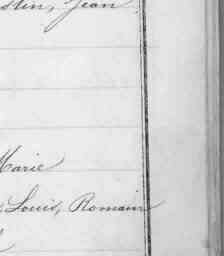 stin, Jean
Marie
Louis, Romain